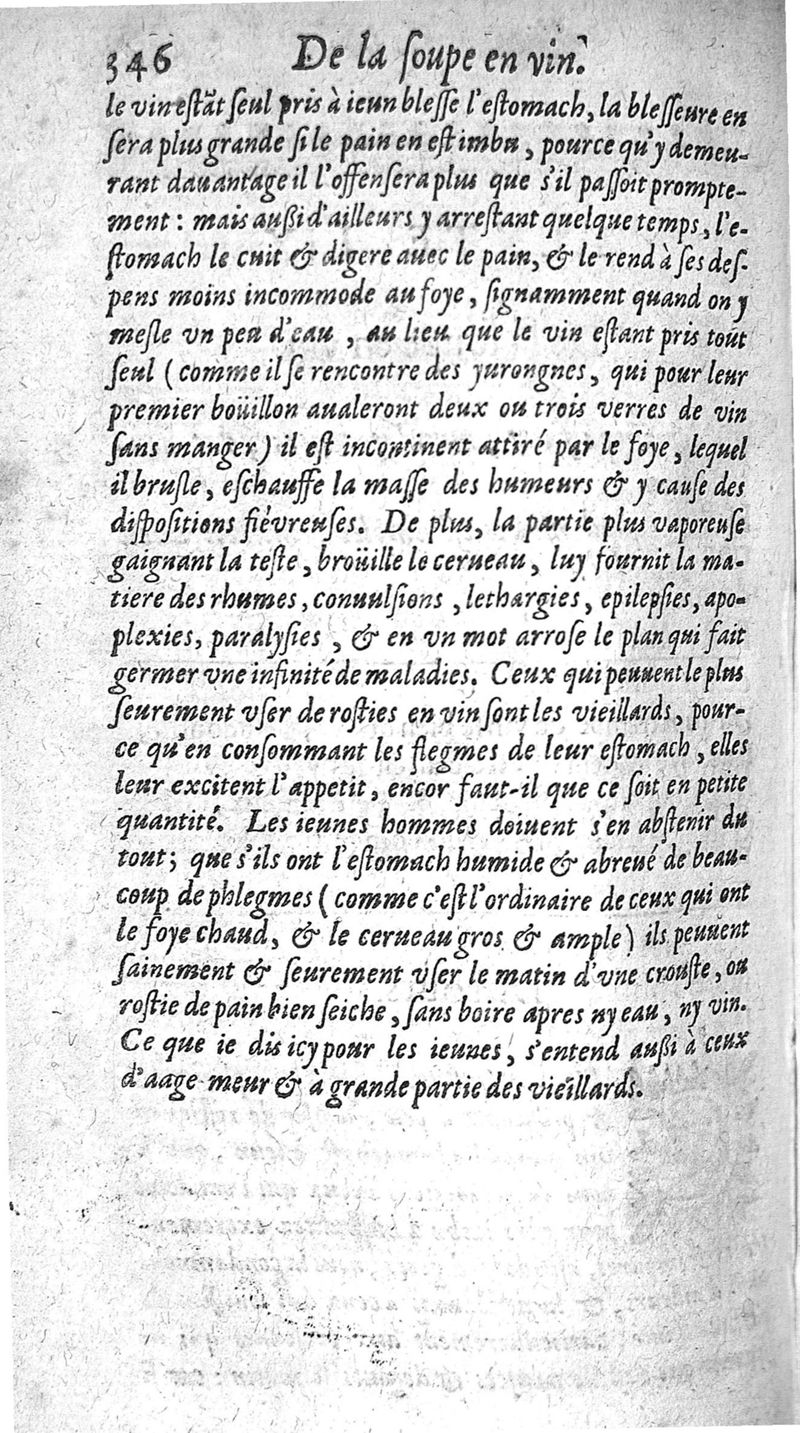 346 De la ſoupe en vin.
le vin eſtãt ſeul pris à ieun bleſſe l'eſtomach, la bleſſeure en
ſera plus grande ſi le pain en eſt imbu, pource qu'y demeu-
rant dauantage il l'offenſera plus que s'il paſſoit prompte-
ment : mais außi d'ailleurs y arreſtant quelque temps, l'e-
ſtomach le cuit & digere auec le pain, & le rend à ſes deſ-
pens moins incommode au foye, ſignamment quand on y
meſle vn peu d'eau , au lieu que le vin eſtant pris tout
ſeul ( comme il ſe rencontre des yurongnes, qui pour leur
premier boüillon aualeront deux ou trois verres de vin
ſans manger ) il eſt incontinent attiré par le foye, lequel
il bruſle, eſchauffe la maſſe des humeurs & y cauſe des
diſpoſitions fiévreuſes. De plus, la partie plus vaporeuſe
gaignant la teſte, broüille le cerueau, luy fournit la ma-
tiere des rhumes, conuulſions , lethargies, epilepſies, apo-
plexies, paralyſies , & en vn mot arroſe le plan qui fait
germer vne infinité de maladies. Ceux qui peuuent le plus
ſeurement vſer de roſties en vin ſont les vieillards, pour-
ce qu'en conſommant les flegmes de leur eſtomach , elles
leur excitent l'appetit, encor faut-il que ce ſoit en petite
quantité. Les ieunes hommes doiuent s'en abſtenir du
tout; que s'ils ont l'eſtomach humide & abreué de beau-
coup de phlegmes ( comme c'eſt l'ordinaire de ceux qui ont
le foye chaud, & le cerueau gros & ample ) ils peuuent
ſainement & ſeurement vſer le matin d'vne crouſte, ou
roſtie de pain bien ſeiche, ſans boire apres ny eau, ny vin.
Ce que ie dis icy pour les ieunes, s'entend außi à ceux
d'aage meur & à grande partie des vieillards.